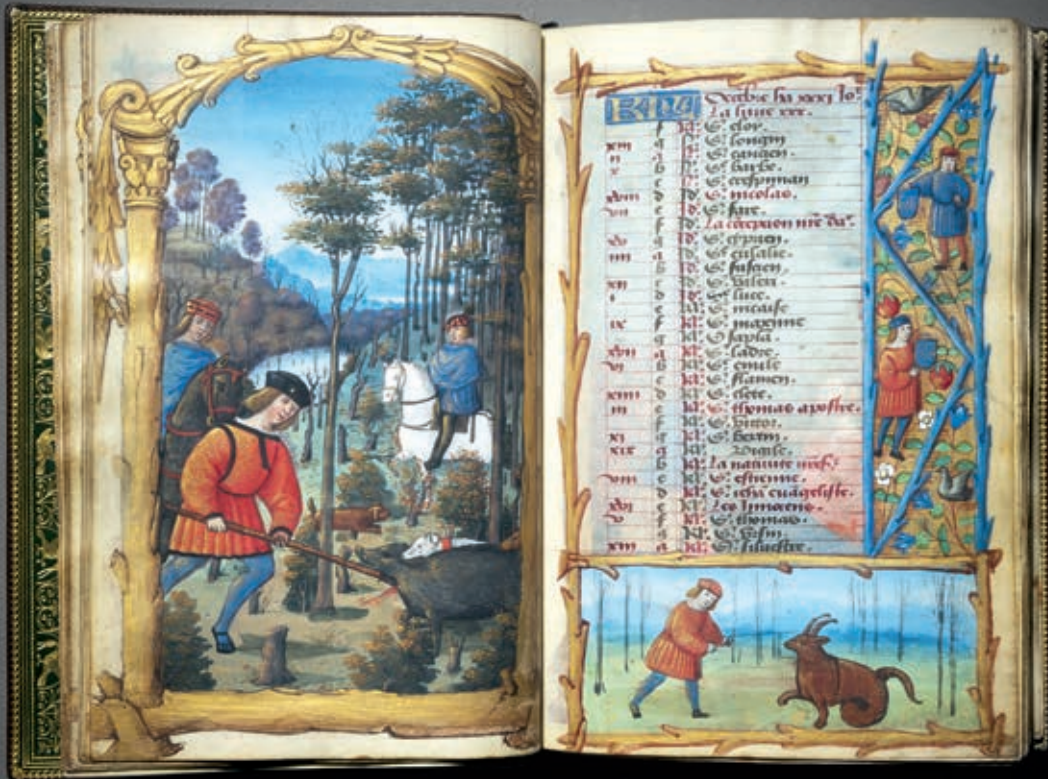 KL Decebre ha xxxi io^s
La lune xxx.
f kl. S. eloy.
xiii g S. longin
ii a S. cancien.
x b S. barbe.
c S. crespinian
xviii d S. nicolas.
vii e S. fare.
f La concepcion nre da^e.
xv g S. cyprien.
iiii a S. eulalie.
b S. fuscien.
xii c S. valeri.
i d S. luce.
e kl. S. nicaise
ix f kl. S. maximie
g kl. S. sapia.
xvii a kl. S. ladre.
vi b kl. S. emile
c kl. S. flamen.
xiiii d kl. S. clete.
iii e kl. S. thomas apostre.
f kl. S. victor.
xi g kl. S.
xix a kl. Vigile.
b kl. La nativite
viii c kl. S. estienne.
d kl. S. jeha evangeliste.
xvi e kl. Les innocens.
v f kl. S. thomas.
g kl. S.
xiii a kl. S. silvestre.